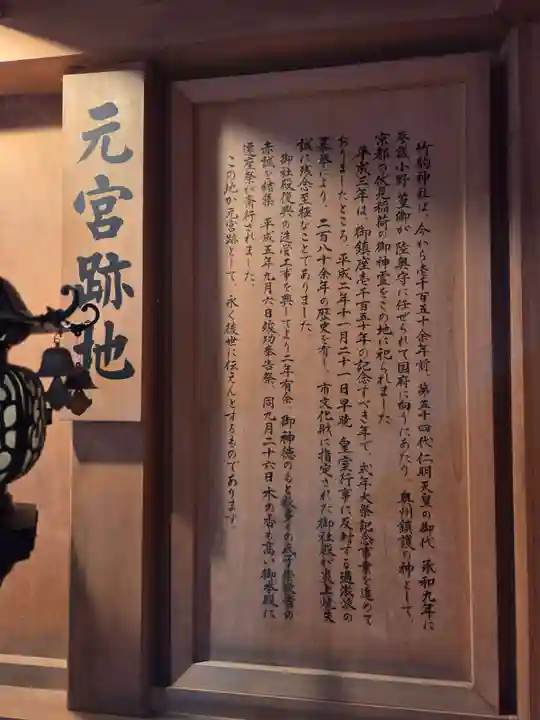 元宮跡地
竹駒神社は、今から壱千百五十余年前、第五十四代仁明天皇の御代、承和九年に
参議小野篁卿が陸奥守に任ぜられて国府に向うにあたり、奥州鎮護の神として、
京都の伏見稲荷の御神霊をこの地に祀られました。
平成三年は、御鎮座壱千百五十年の記念すべき年で、式年大祭記念事業を進めて
おりましたところ、平成二年十一月二十一日早暁、皇室行事に反対する過激派の
暴挙により、二百八十余年の歴史を有し、市文化財に指定された御社殿が炎上焼失
誠に残念至極なことでありました。
御社殿復興の造営工事を興してより二年有余、御神徳のもと数多の氏子崇敬者の
赤誠を結集、平成五年九月六日竣功奉告祭、同九月二十六日木の香も高い御本殿に
遷座祭が斎行されました。
この地が元宮跡として、永く後世に伝えんとするものであります。